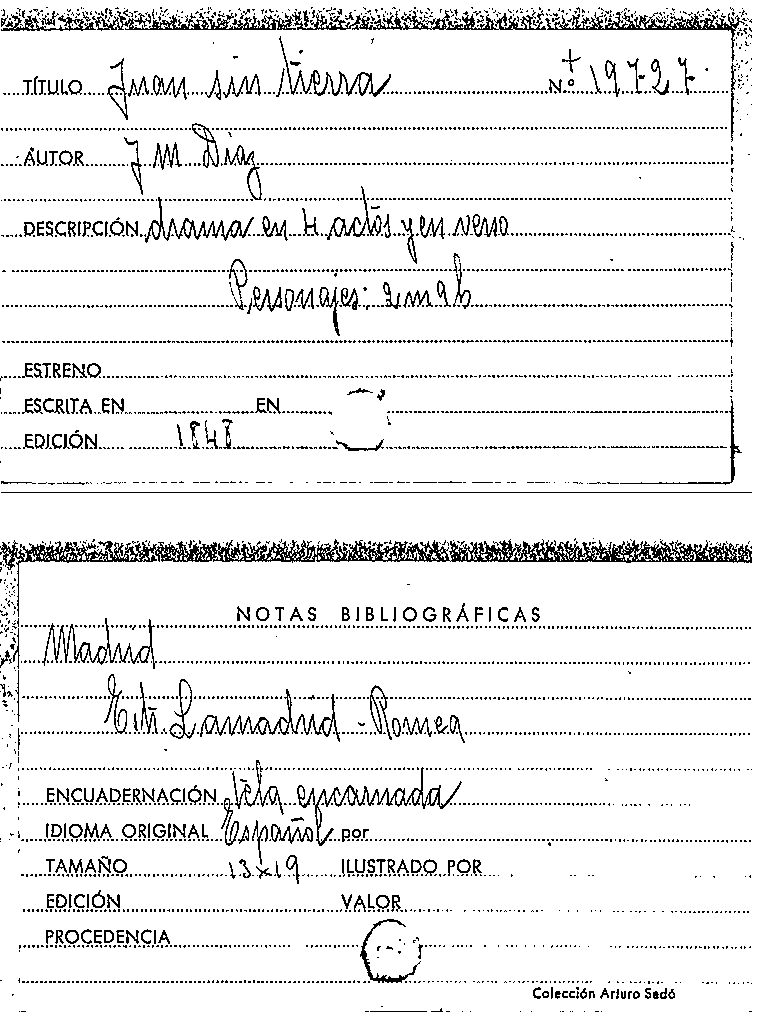 TÍTULO Juan sin tierra Nº + 19727
AUTOR J M Diaz
DESCRIPCIÓN drama en 4 actos y en verso
Personajes: 2m 9h
ESTRENO
ESCRITA EN EN
EDICIÓN 1848
NOTAS BIBLIOGRÁFICAS
Madrid
Lamadrid - Romea
ENCUADERNACIÓN tela encarnada
IDIOMA ORIGINAL Español por
TAMAÑO 13x19 ILUSTRADO POR
EDICIÓN VALOR
PROCEDENCIA
Colección Arturo Sedó